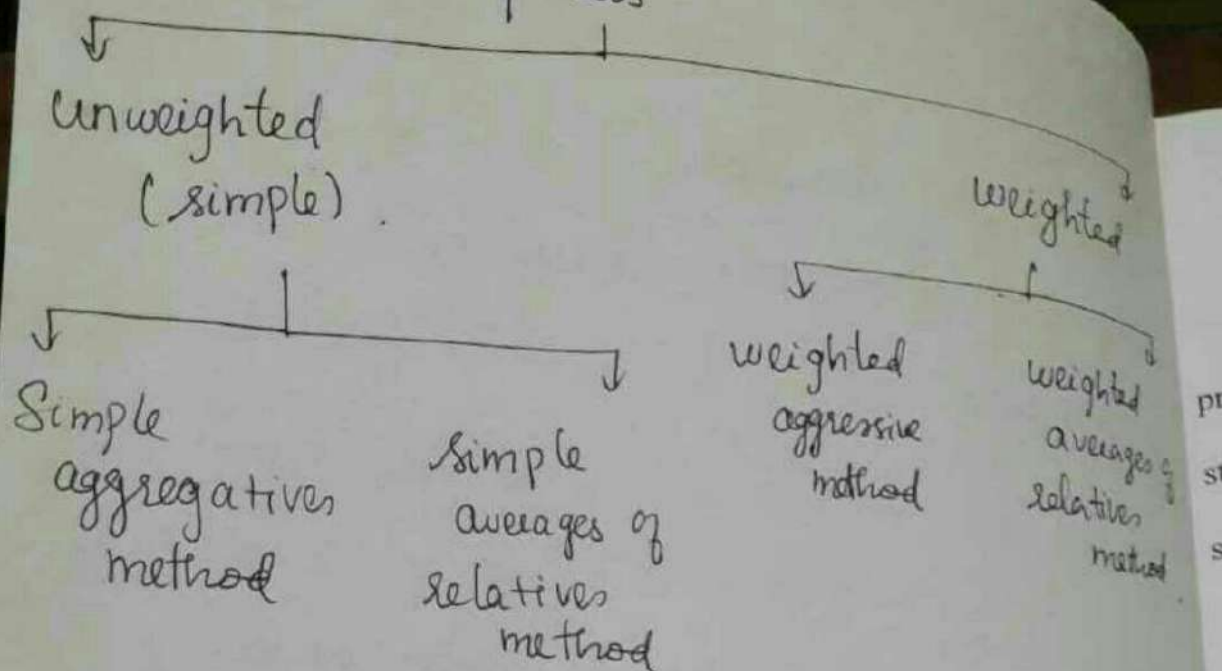 Unweighted
(simple).
weighted
Simple
aggregatives
method
simple
averages of
relatives
method
weighted
aggressive
method
weighted
averages of
relatives
method